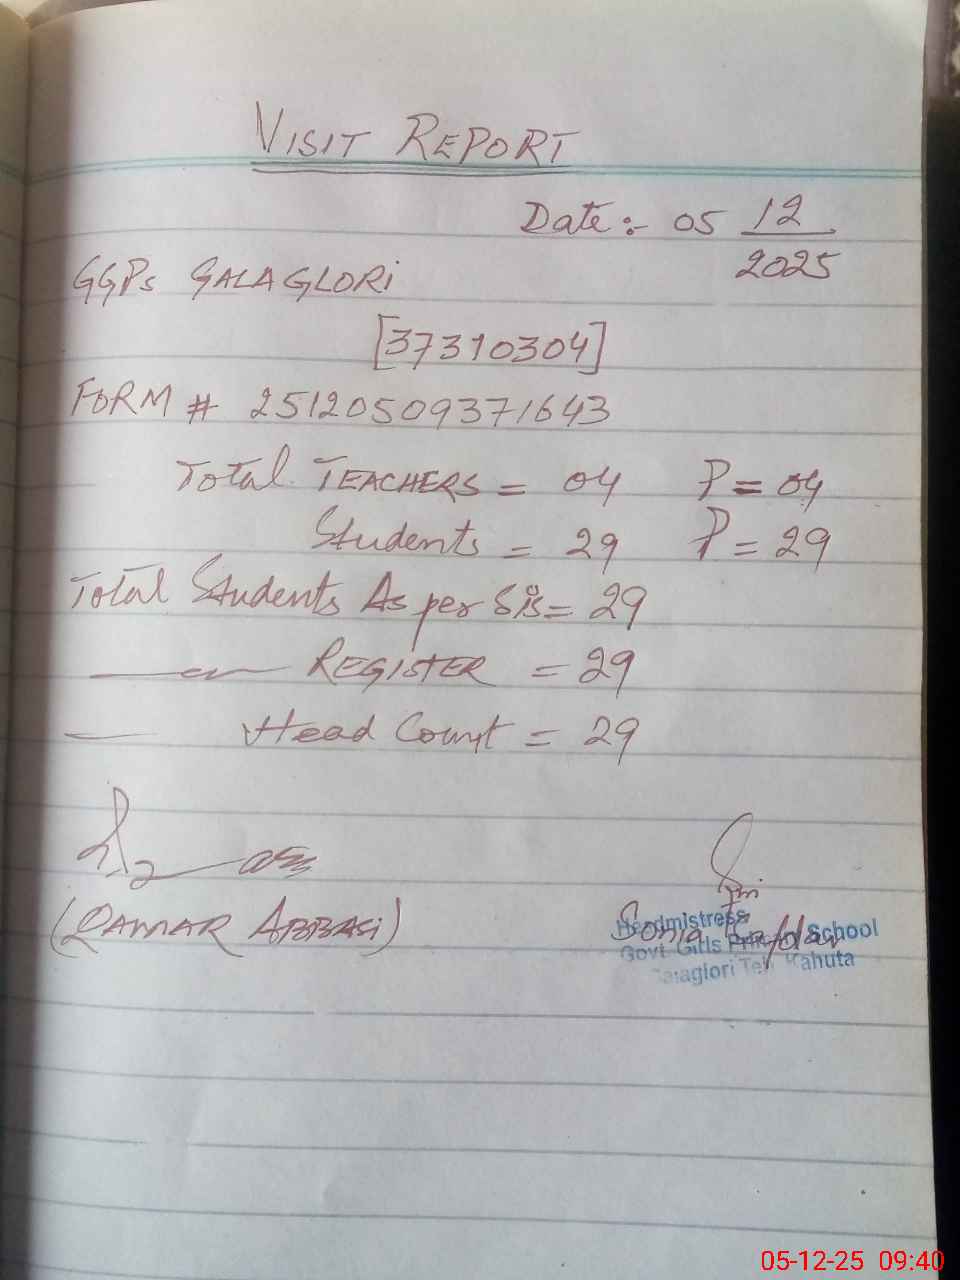 VISIT REPORT
Date :- 05 12
2025
GGPs GALAGLORi
[37310304]
FORM # 25120509371643
Total TEACHERS = 04 P = 04
Students = 29 P = 29
Total Students As per Sis = 29
REGISTER = 29
Head Count = 29
(QAMAR ABBASi)
Sonia
Headmistress
Govt. Girls Primary School
Galaglori Teh. Kahuta
05-12-25 09:40